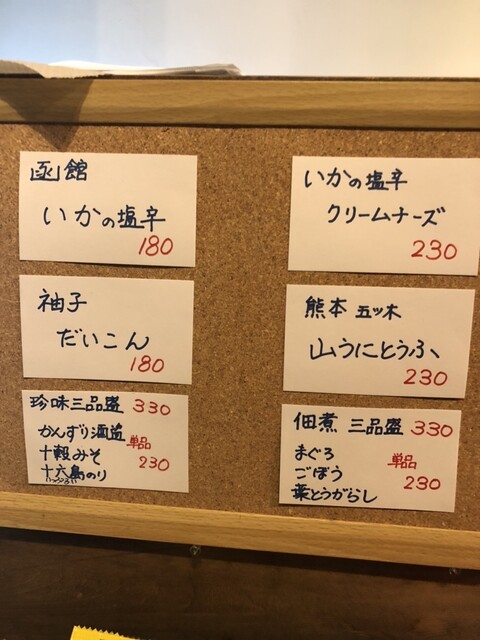 函館
いかの塩辛
180
いかの塩辛
クリームチーズ
230
柚子
だいこん
180
熊本 五ツ木
山うにとうふ
230
珍味三品盛 330
かんずり酒盗
十穀みそ
十六島のり
うっぷるい
単品
230
佃煮 三品盛 330
まぐろ
ごぼう
葉とうがらし
単品
230